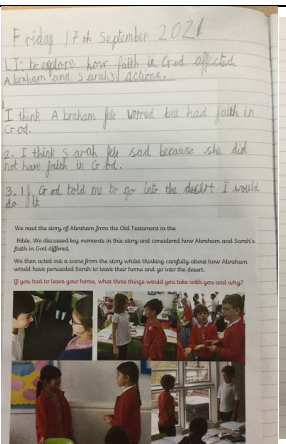 Friday 17th September 2021
LI: to explore how faith in God affected
Abraham and Sarah's actions.
I think Abraham felt worried but had faith in
God.
2. I think Sarah felt sad because she did
not have faith in God.
3. If God told me to go into the desert I would
do it
We read the story of Abraham from the Old Testament in the
Bible. We discussed key moments in this story and considered how Abraham and Sarah's
faith in God differed.
We then acted out a scene from the story whilst thinking carefully about how Abraham
would have persuaded Sarah to leave their home and go into the desert.
If you had to leave your home, what three things would you take with you and why?